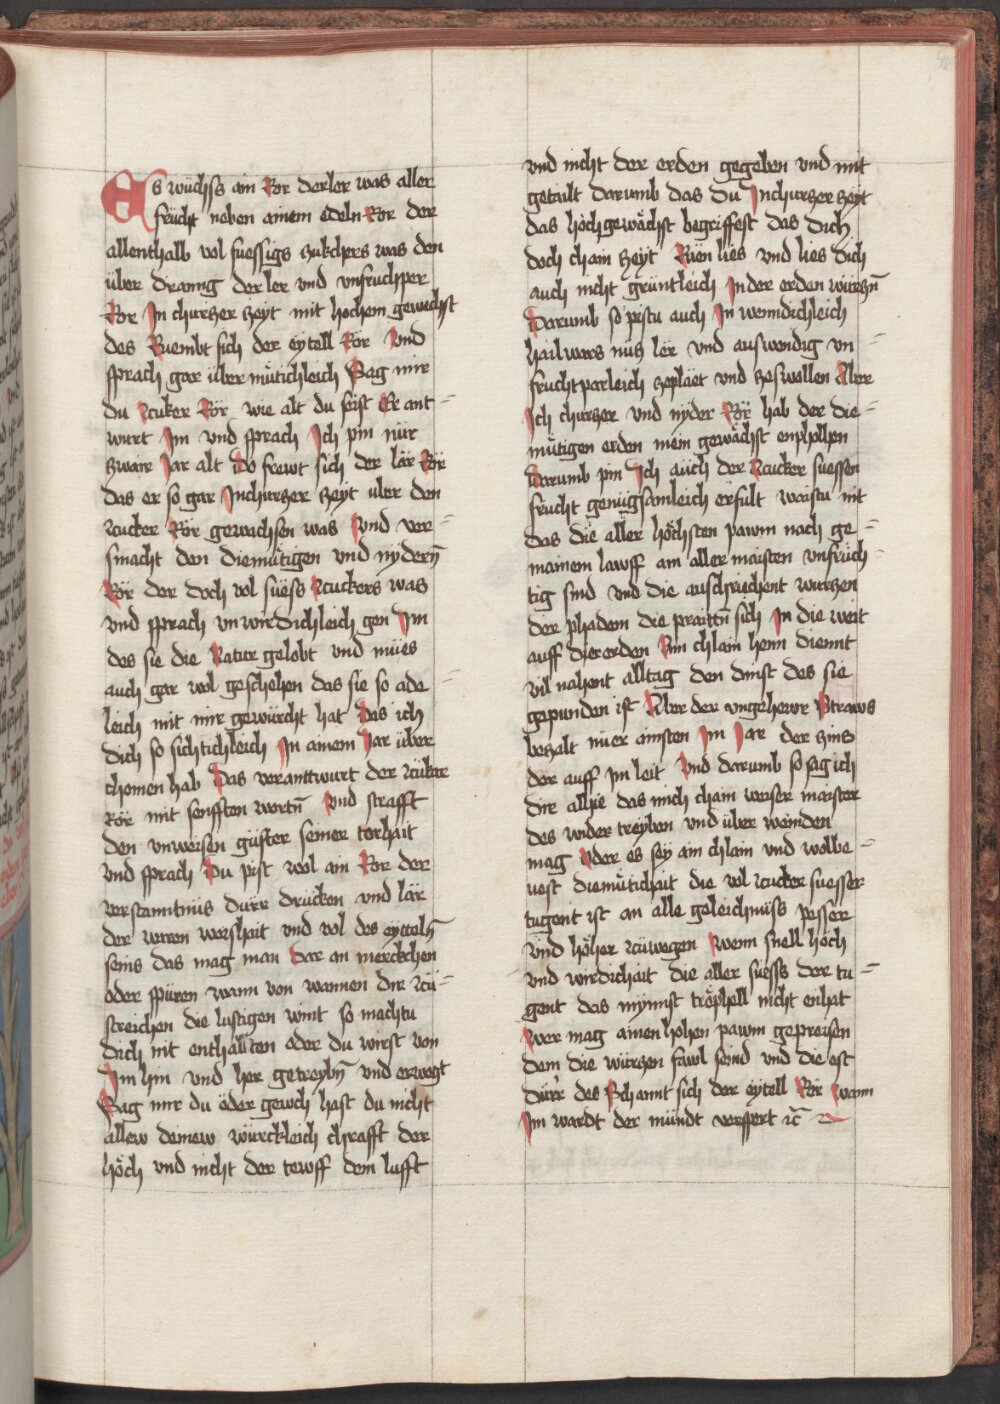 Es wüchss ain Ror der ler was aller
frücht neben ainem edeln Ror der
allenthalb vol suessigs zukchers was den
über dranng der ler vnd vnfruchper
Ror In churczer zeyt mit hochem gewechst
des Ruembt sich der eytell Rör Vnd
sprach gar über mütichleich Sag mir
du Zcuker Rör wie alt du seist Er ant=
wurt Im vnd sprach Ich pin nür
zwair Jar alt Do frewt sich der lär Rör
das er so gar In churczer zeyt vber den
zcucker Rör gewachsen was Vnd ver=
smacht den diemütigen vnd nydern̄
Rör der doch vol süess Zcuckers was
vnd sprach vnwirdichleich gen Im
des sie die Natur gelobt vnd mües
auch gar wol geschehen das sie so ade=
leich mit mir gewürcht hat Das ich
dich so sichtichleich In ainem Jar über
chomen hab Das veranttwurt der zcukcer
Rör mit senfften wortn̄ Vnd strafft
den vnweysen güfter seiner torhait
Vnd sprach Du pist wol ain Ror der
verstanntnüs dürr drucken vnd lär
der waren weyshait vnd vol des eytteln̄
seins das mag man Dar an merckchen
oder spüren wann von wannen dir zcü=
streichen die lustigen wint so machtu
dich nit enthalten oder du wirst von
Im hin vnd her getreybn̄ vnd erwegt
Sag mir du öder gewch hast du nicht
allew deinew würckleich chrafft der
höch vnd nicht der tewff dem lufft
vnd nicht der erden gegeben vnd mit
getailt darumb das du In churczer zeyt
das höch gewächst begriffest das dich
doch chain zeyt Rüen lies vnd lies dich
auch nicht grüntleich In der erden würczn̄
Darumb so pistu auch Inwenndichleich
hailwers nüs ler vnd auswendig vn=
fruchtparleich zepläet vnd zeswallen Aber
Ich churczer vnd nyder Rör hab der die=
mütigen erden mein gewächst enpholhen
Darumb pin Ich auch der Zcucker suessen
frücht genügsamleich erfult waistu nit
das die aller höchsten pawm nach ge=
mainem lawff am aller maisten vnfrüch=
tig sind vnd die auschriechent würczen
der phadem die praittn̄ sich In die weit
auff der erden Ain chlain henn diennt
vil nahent alltag den dinst des sie
gepunden ist Aber der vngehewr Strawss
bezalt nuer ainsten Im Jar der zins
der auff im leit Vnd darumb so sag ich
dir alhie das mich chain weyser maister
des wider treyben vnd über weinden
mag Oder es sey ain chlain vnd wolbe=
uest diemütichait die vol zcucker suesser
tugent ist an alle geleichnüss pesser
Vnd höher zcüwegen Wenn snell höch
vnd wirdichait die aller suesss der tu=
gent das mynnst tröphell nicht enhat
Wer mag ainen hohen pawm gepreysen
dem die würczen fawl seind vnd die est
dürr des Schamt sich der eytell Rör Wann
Im wardt der mündt verspert ꝛc̄